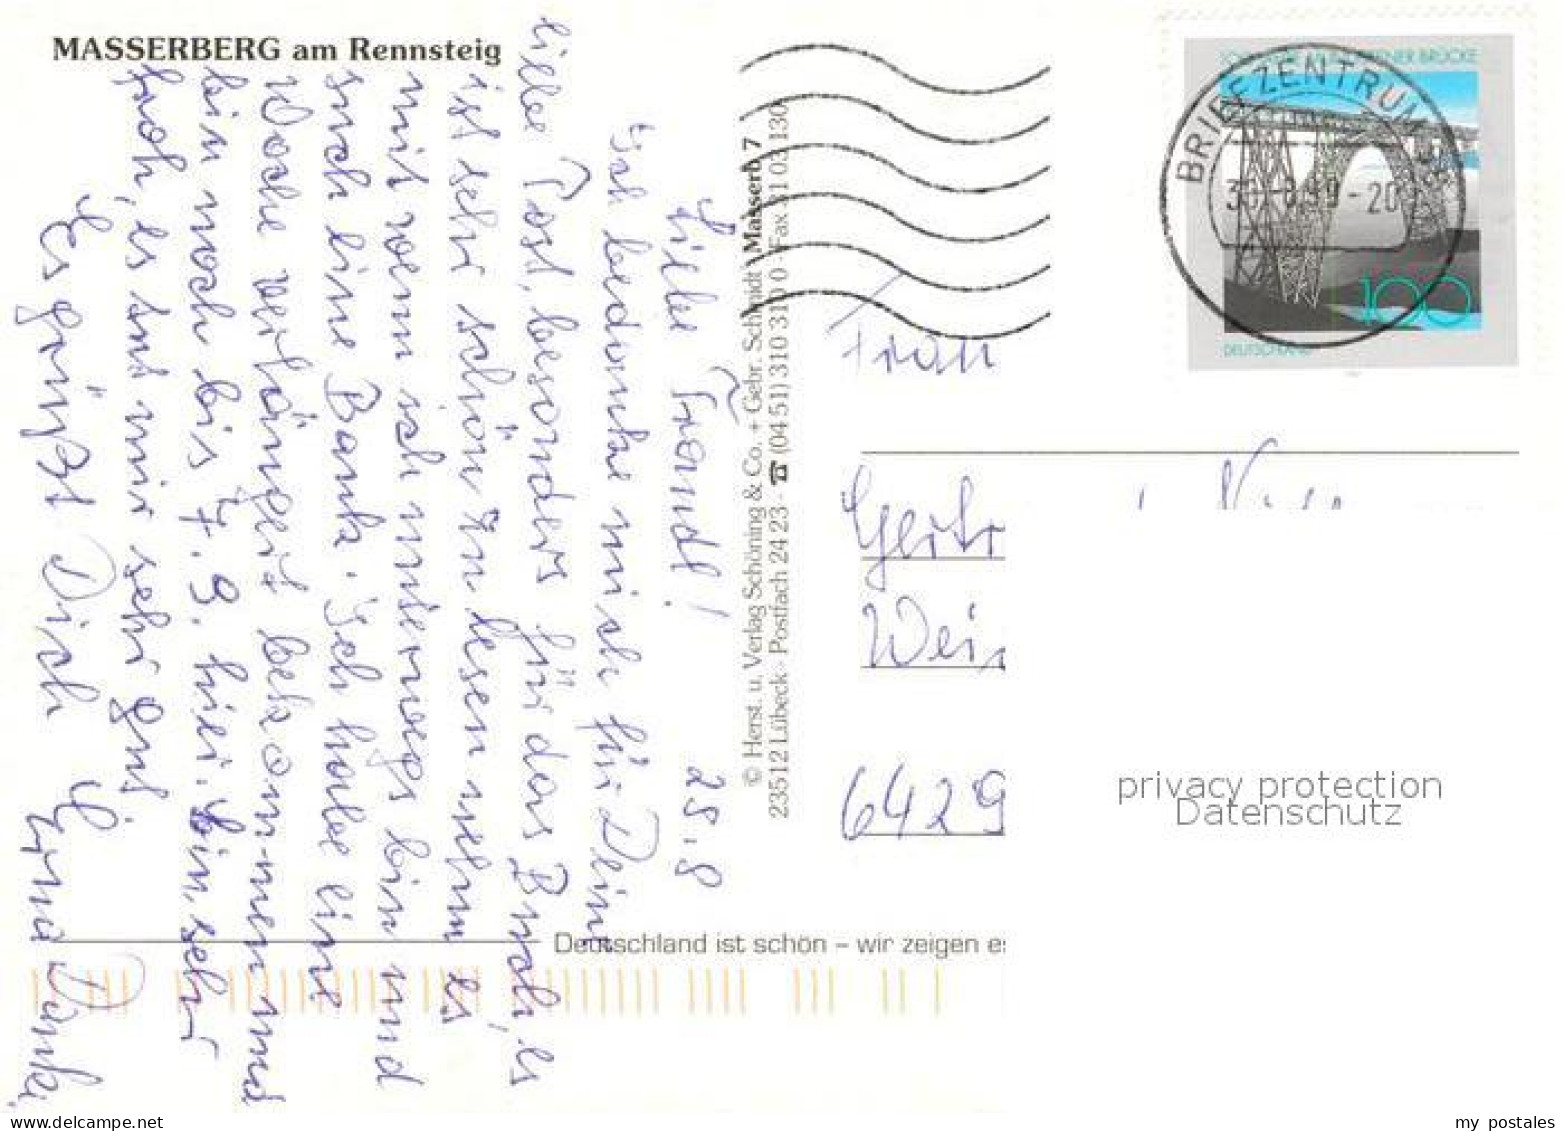 MASSERBERG am Rennsteig
25.8
Liebe Traudl!
Ich bedanke mich für Deine
liebe Post, besonders für das Buch, es
ist sehr schön zu lesen wenn es
mit wenn ich unterwegs bin und
such eine Bank. Ich habe eine
Woche verlängert bekommen und
bin noch bis 7.9. hier. bin sehr
froh, es tut mir sehr gut
Es grüßt Dich
© Herst. u. Verlag Schöning & Co. + Gebr. Schmidt Masserb 7
23512 Lübeck · Postfach 24 23 · ☎ (04 51) 310 310 0 · Fax 31 03 130
BRIEFZENTRUM
-20
100
DEUTSCHLAND
Frau
6429
privacy protection
Datenschutz
Deutschland ist schön – wir zeigen es
www.delcampe.net
my_postales